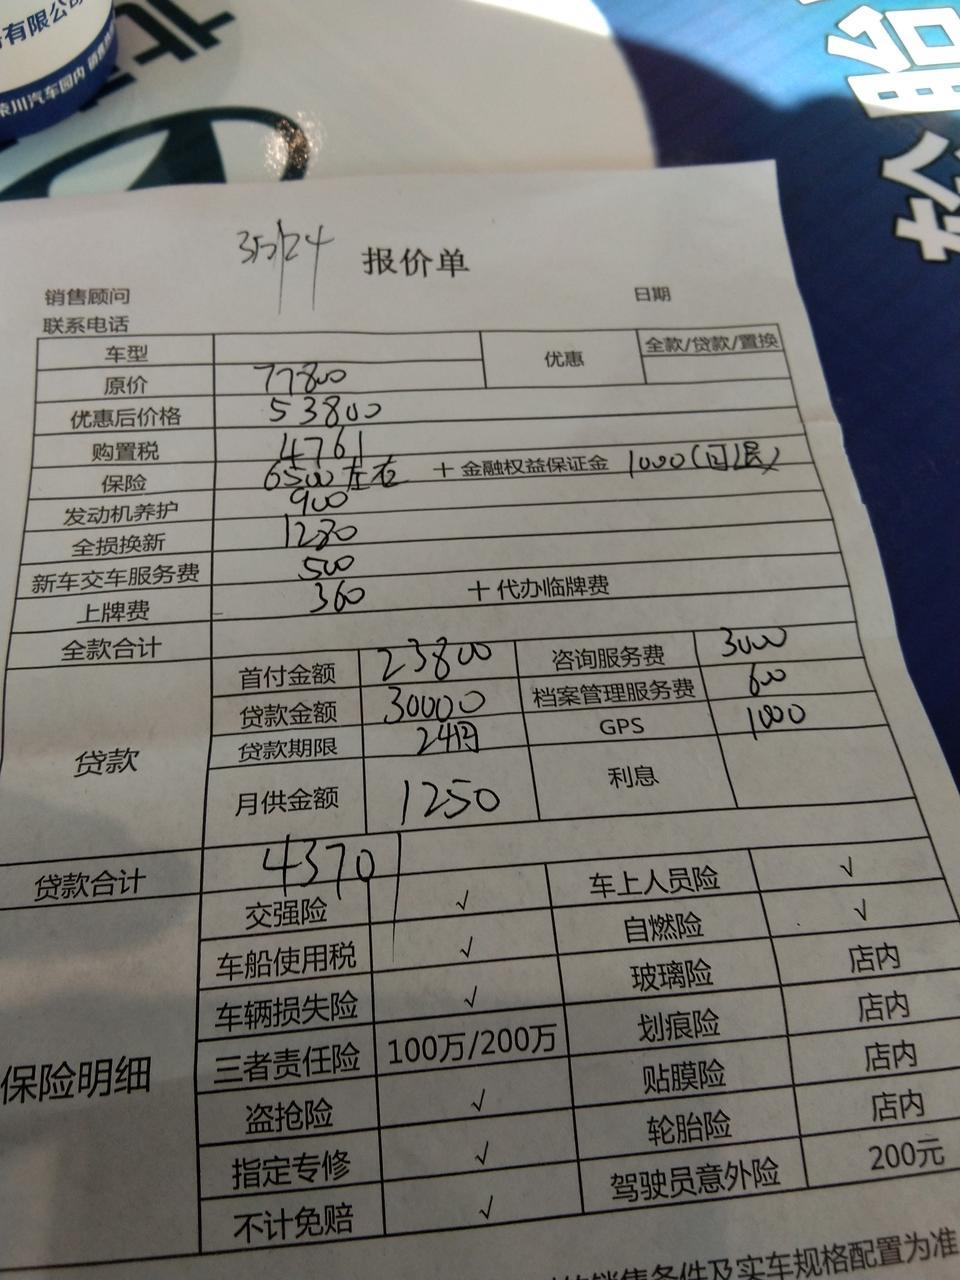 有限公司
荣川汽车园内 销售热
北
胎
松
报价单
销售顾问 日期
联系电话
车型 优惠 全款/贷款/置换
原价 77800
优惠后价格 53800
购置税 4761
保险 6500左右 +金融权益保证金 1000(可退)
发动机养护 900
全损换新 1280
新车交车服务费 500
上牌费 360 +代办临牌费
全款合计
贷款 首付金额 23800 咨询服务费 3000
贷款金额 30000 档案管理服务费 600
贷款期限 24期 GPS 1000
月供金额 1250 利息
贷款合计 43701
保险明细 交强险 √ 车上人员险 √
车船使用税 √ 自燃险 √
车辆损失险 √ 玻璃险 店内
三者责任险 100万/200万 划痕险 店内
盗抢险 √ 贴膜险 店内
指定专修 √ 轮胎险 店内
不计免赔 √ 驾驶员意外险 200元
销售条件及实车规格配置为准